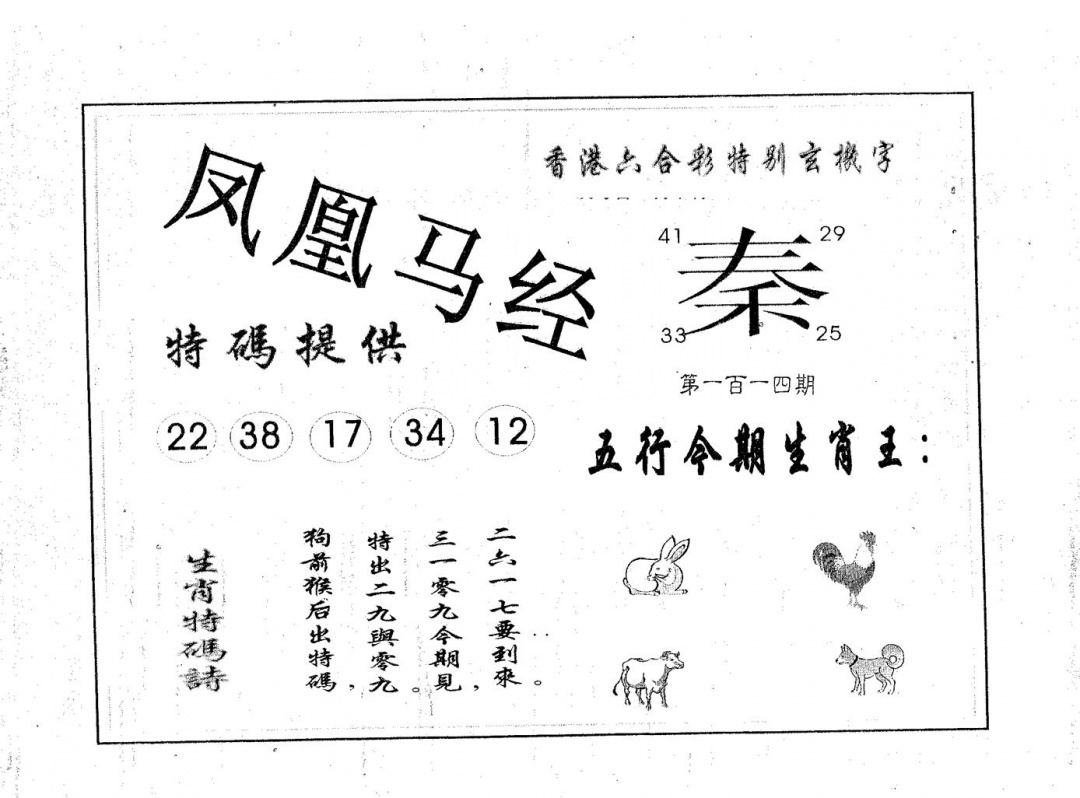 凤凰马经
香港六合彩特别玄機字
41 29
秦
33 25
第一百一四期
特碼提供
22 38 17 34 12
五行今期生肖王：
生肖特碼詩
狗前猴后出特碼，
特出二九與零九。
三一零九今期見，
二六一七要到來。